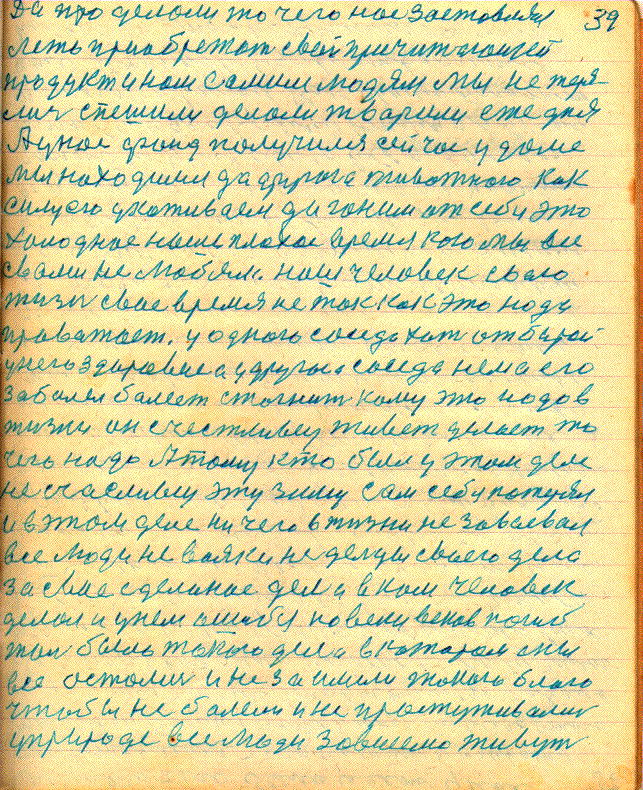 39
Да про делали то чего нас заставлял
леть приобретат свой причитающей
продукт и нам самим людям мы не теря
лис спешили делали тварили еже дня
А у нас фонд получился сейчас у доме
мы находили да другога животного как
силу его ухаживаем ды гоним от себя это
холодное ныне плохое время кого мы все
свами не любям. наш человек свою
жизн свое время не так как это нада
проватает. у одного соседа хот отбавай
унего здаровие а удругога соседа нема его
заболел балеет стогнит кому это надо в
жизни он счестливец живет делает то
чего надо Атому кто был у этом деле
не счасливец эту зиму сам себя потерял
и в этом деле ни чего в жизни не завоевал
все люди не вояки не делци своего дела
за свае сделаное дела в ком человек
делал и унем ошибся на веки веков погиб
там было такого дела в котором они
все осталис и не за имели такого благо
чтобы не балели и не простуживалис
уприроде все люди зависемо живут